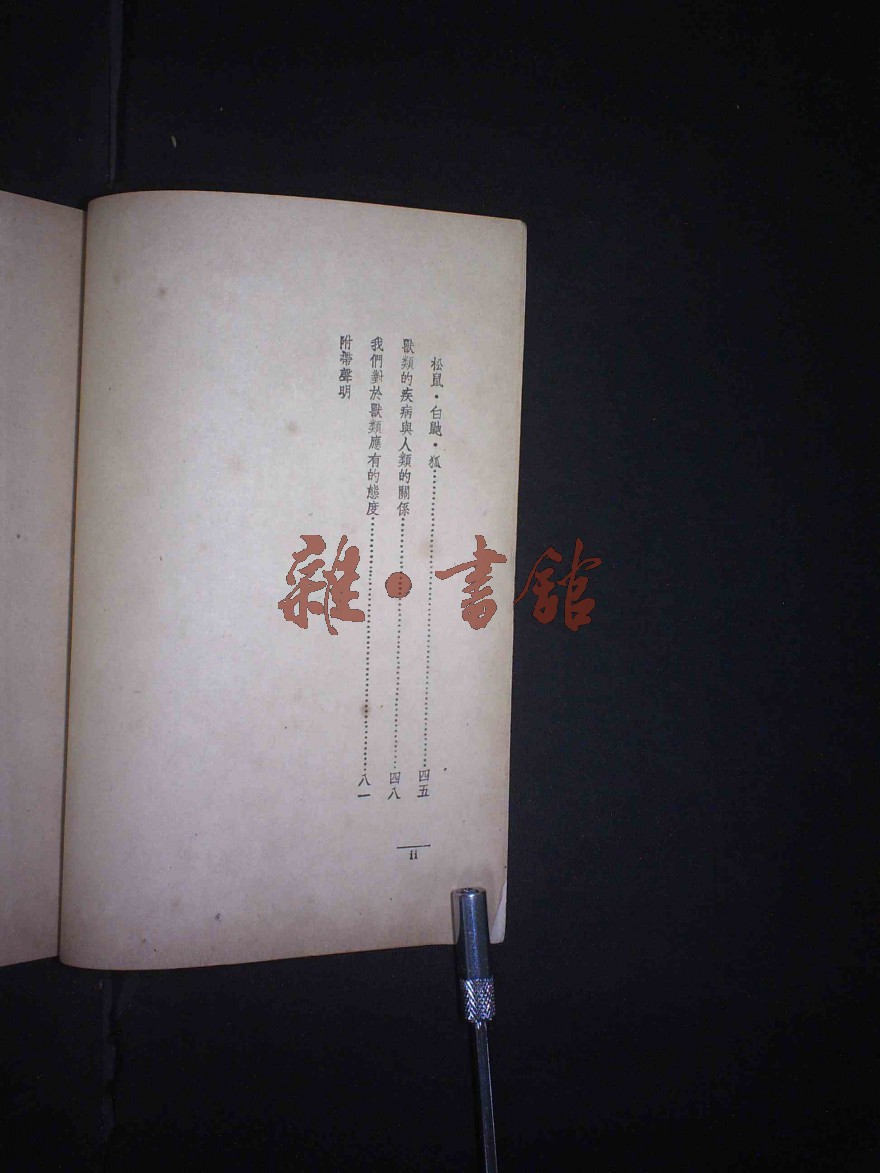 松鼠・白鼬・狐……四五
獸類的疾病與人類的關係……四八
我們對於獸類應有的態度……八一
附帶聲明
ii
雜・書館